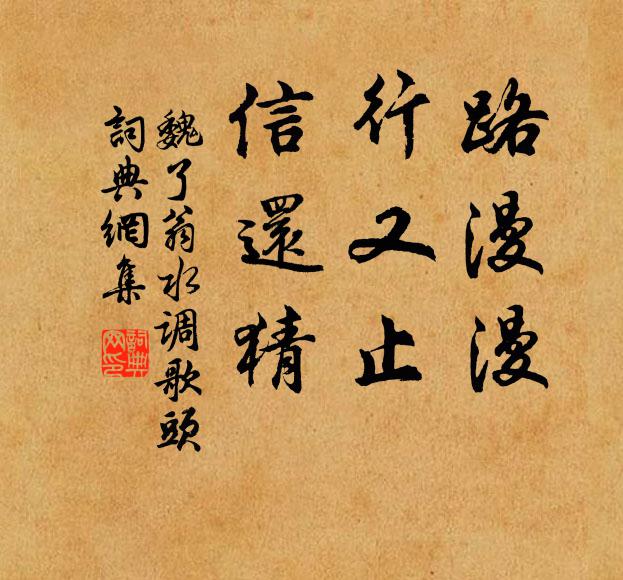 路漫漫
行又止
信還猜
魏了翁水调歌頭
詞典網集
詞典網印